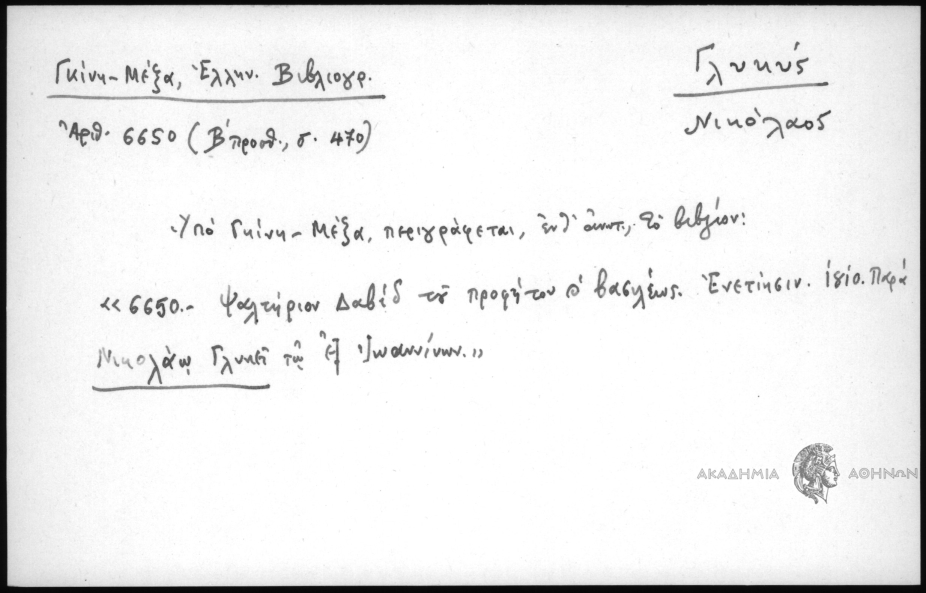 Γκίνη-Μέξα, Ἑλλην. Βιβλιογρ.
Ἀριθ. 6650 (Β΄ προσθ., σ. 470)
Γλυκύς
Νικόλαος
Ὑπό Γκίνη-Μέξα, περιγράφεται, ἐνθ' ἀνωτ., τό βιβλίον:
«6650.- Ψαλτήριον Δαβίδ τοῦ προφήτου βασιλέως. Ἐνετίησιν. Παρά
Νικολάῳ Γλυκεῖ τῷ ἐξ Ἰωαννίνων.»
ΑΚΑΔΗΜΙΑ ΑΘΗΝΩΝ